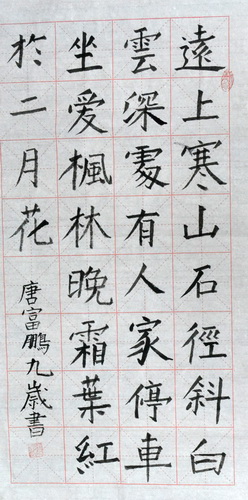 遠上寒山石徑斜白
雲深處有人家停車
坐愛楓林晚霜葉紅
於二月花
唐富鵬九歲書